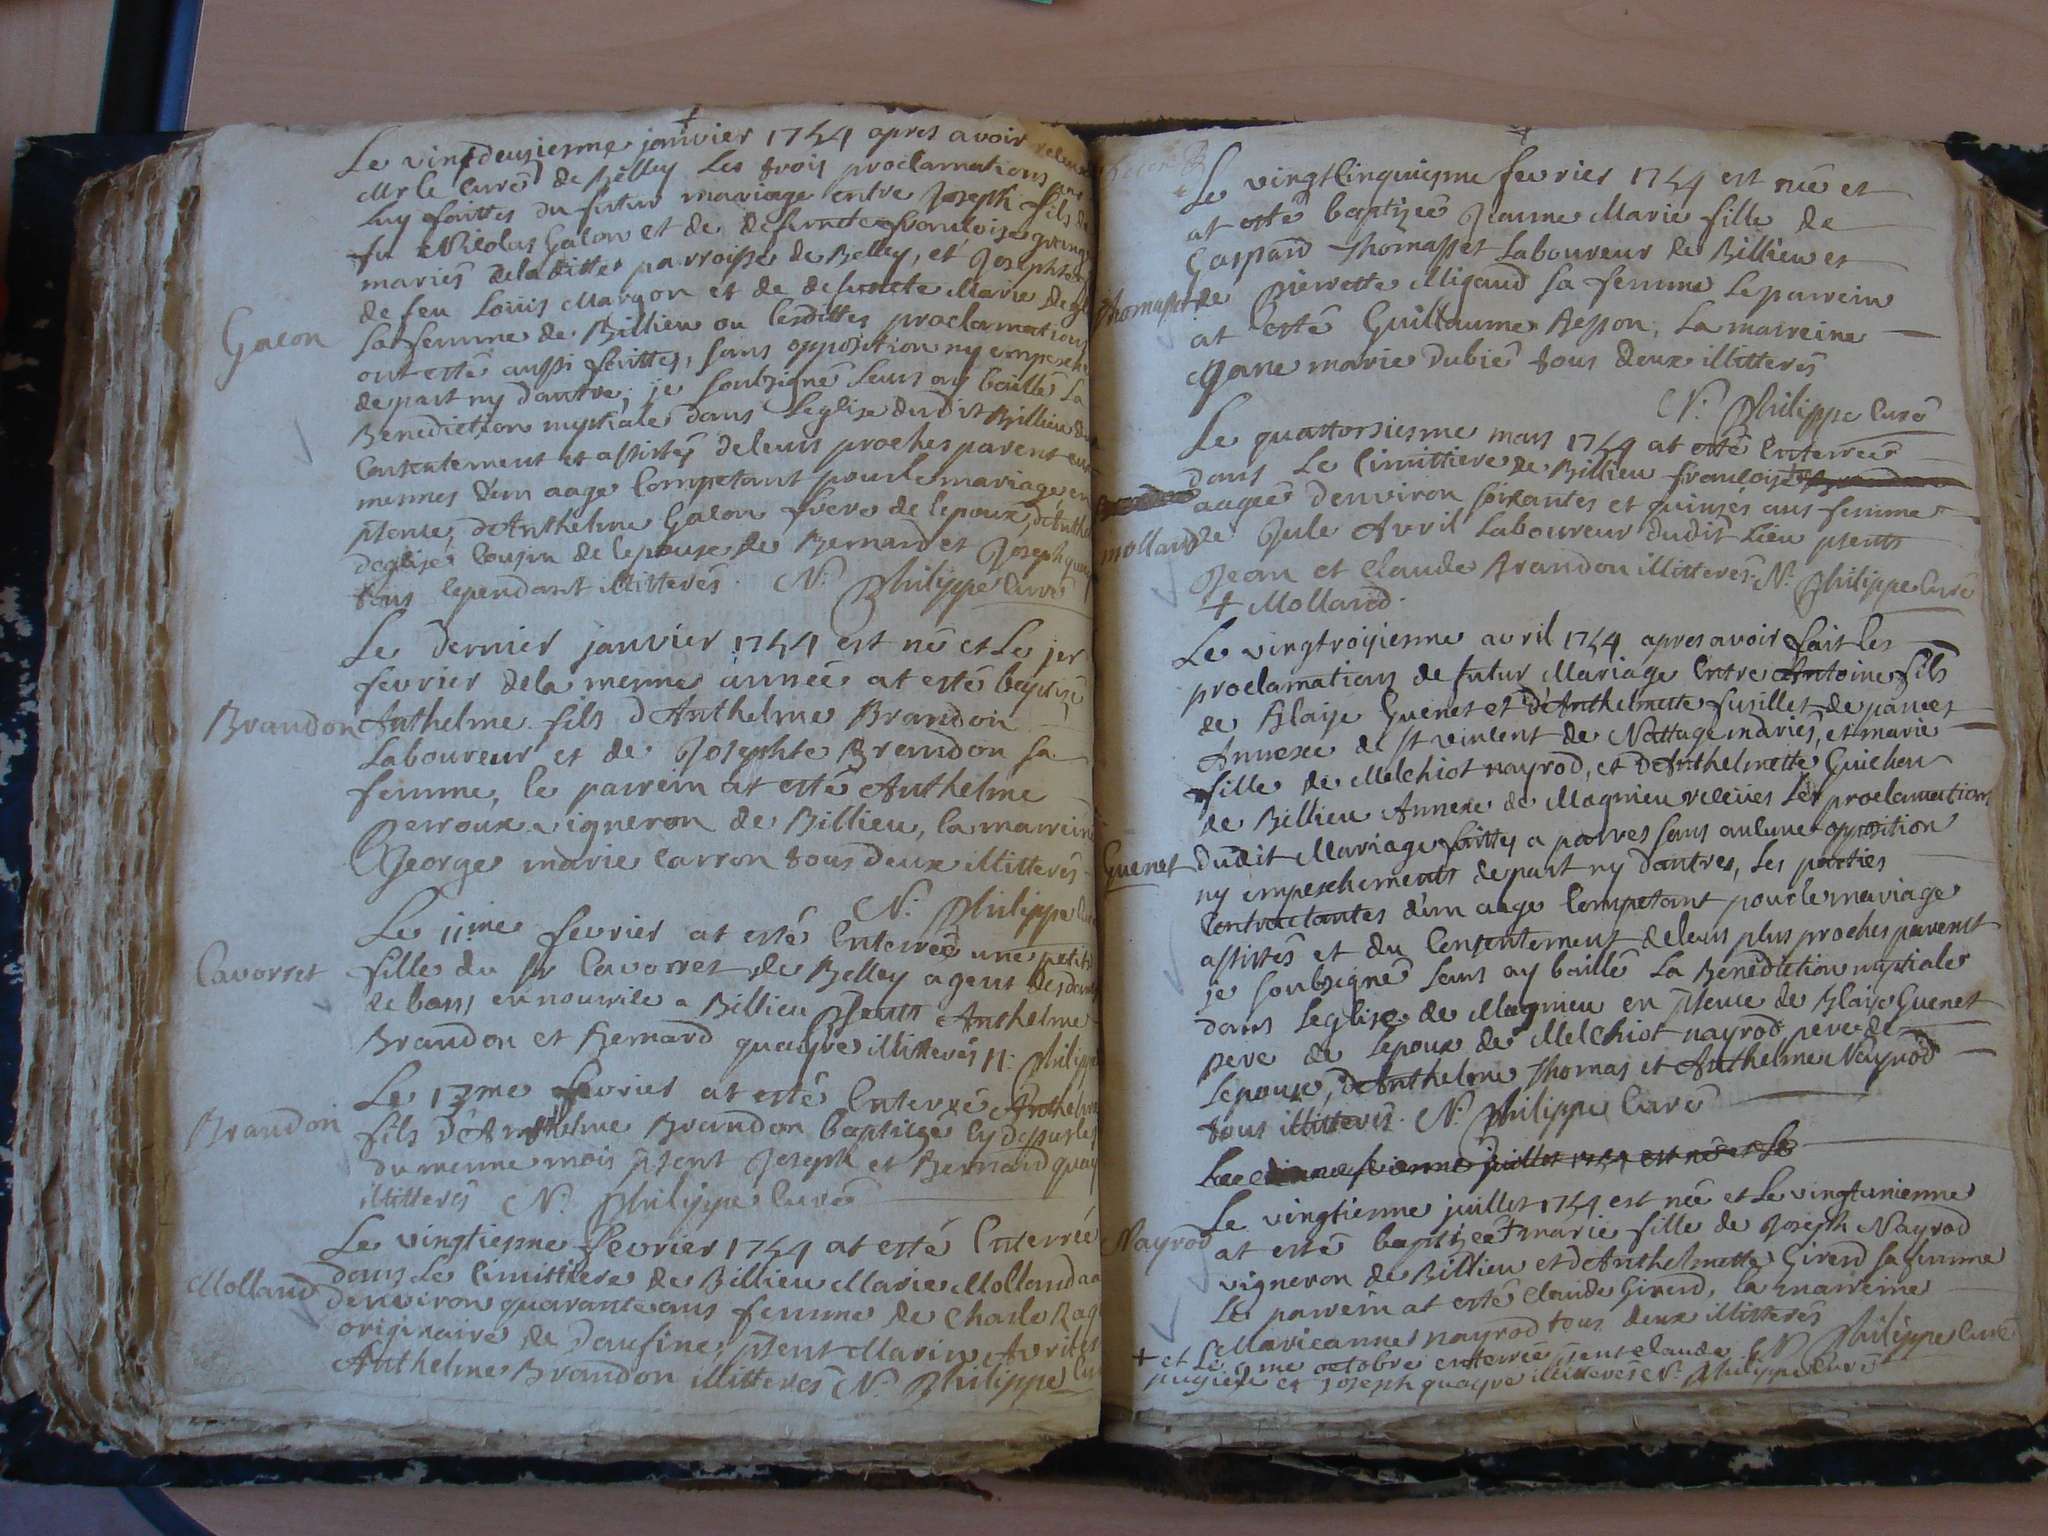 Le vingtdeusiesme janvier 1754 apres avoir releué
Mr le Curé de Belley Les trois proclamations par
Luy faittes du futur mariage entre Joseph fils de
fu Nicolas Galon et de defuncte francoise grang
mariés de laditte parroisse de Belley, et Josephte
de feu Louis Margon et de defuncte Marie Degl
Galon
sa femme de Billieu ou lesdittes proclamations
ont esté aussi faittes, sans opposition ny empesche
de part ny dautre; je soubsigné leurs ay baillé La
Benediction nuptiale dans Leglise dudit Billieu du
Consentement et assistés de leurs proches parent eux
mesmes d'un aage Competant pour le mariage en
psence, d'Anthelme Galon frere de lepoux, d'Anthel
deglise Cousin de lepouse, de Bernard et Joseph quay
tous cependant illitterés. N. Philippe Curé
Le dernier janvier 1754 est né et Le jer
fevrier de la mesme année at esté baptisé
Brandon
Anthelme fils d'Anthelme Brandon
Laboureur et de Josephte Brandon sa
femme, le parrein at esté Anthelme
Perroux vigneron de Billieu, la marreine
George marie Carron tous deux illitterés
N. Philippe Cu
Le 11me fevrier at esté Enterrée une petite
Cavorret
fille du Sr Cavorret de Belley agent des dames
de bons en nourice a Billieu psents Anthelme
Brandon et Bernard quayre illitterés N. Philippe
Le 13me fevrier at esté Enterré Anthelme
Brandon
fils d'Anthelme Brandon baptisé cy dessus le
du mesme mois psent Joseph et Bernard quay
illitterés N. Philippe Curé
Le vingtiesme fevrier 1754 at esté Enterrée
dans Le Cimittiere de Billieu Marie Molland aa
Molland
denviron quarante ans femme de Charle Rag
originaire de Daufine, psent Marin Avril et
Anthelme Brandon illitterés N. Philippe Cu
Le vingtcinquiesme fevrier 1754 est née et
at esté baptizée Jeanne Marie fille de
Gaspard Thomasset Laboureur de Billieu et
Thomasset
de Pierrette Migaud sa femme Le parrein
at esté Guillaume Besson, La marreine
Jane marie Dubié tous deux illitterés
N. Philippe Curé
Le quattorsiesme mars 1754 at esté Enterrée
dans Le Cimittiere de Billieu francoise + Brandon
Brandon
aagée denviron soixantes et quinses ans femme
Molland
de Jule Avril Laboureur dudit Lieu psents
Jean et Claude Brandon illitterés N. Philippe Curé
+ Mollard.
Le vingtroisiesme avril 1754 apres avoir fait les
proclamations de futur Mariage Entre Antoine fils
de Blaise Guenet et d'Anthelmette fusillet de parves
Annexe de St vincent de Nattage mariés, et marie
fille de Melchiot nayrod, et d'Anthelmette Guichon
de Billieu Annexe de Magnieu releües Les proclamations
Guenet
dudit Mariage faittes a parves sans aulune opposition
ny empeschements de part ny dautres, Les parties
Contractantes d'un aage Competant pour le mariage
assistés et du Consentement de leurs plus proches parenst
je soubsigné leurs ay baillé La Benediction nuptiale
dans Leglise de Magnieu en psence de Blaise Guenet
pere de Lepoux de Melchiot nayrod pere de
Lepouse, d'Anthelme Thomas et Anthelme Nayrod
tous illitterés. N. Philippe Curé
juillet 1754 est né et Le
Le vingtiesme juillet 1754 est née et Le vingtuniesme
Nayrod
at esté baptizée + marie fille de Joseph Nayrod
vigneron de Billieu et d'Anthelmette Girerd sa femme
Le parrein at esté Claude Girerd, la marreine
Marieanne nayrod tous deux illitterés
N. Philippe Curé
+ et Le 9me octobre enterrée psent claude
pugieux et Joseph quayre illitterés N. Philippe Curé